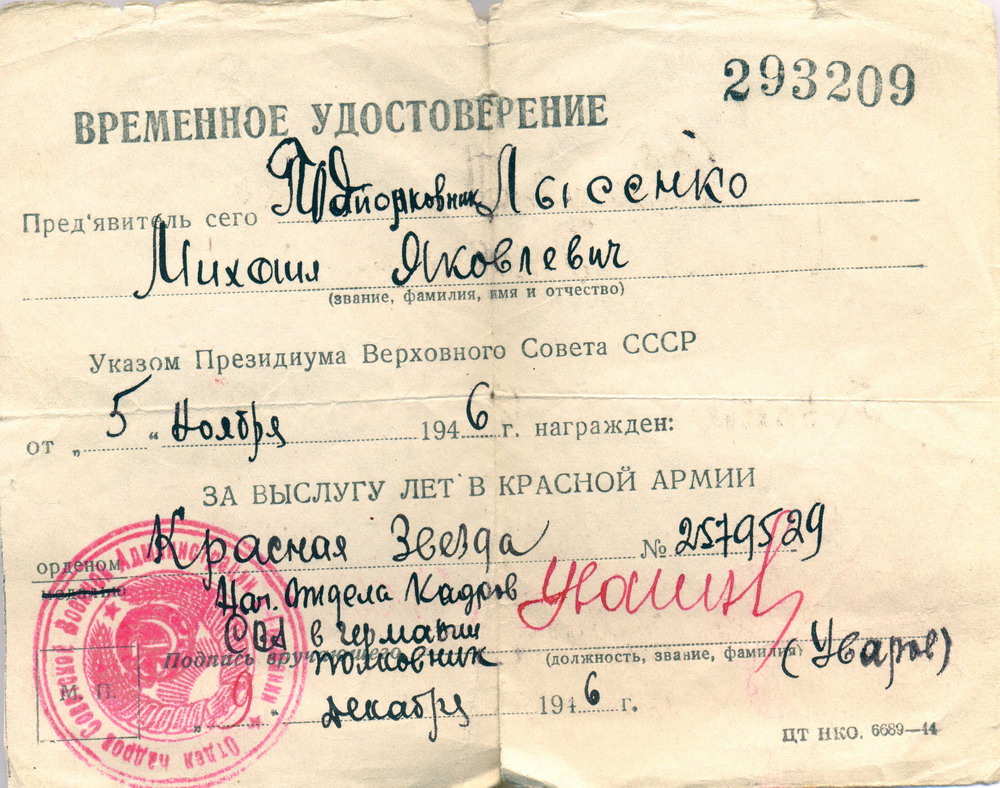 293209
ВРЕМЕННОЕ УДОСТОВЕРЕНИЕ
Пред'явитель сего Подполковник Лысенко
Михаил Яковлевич
(звание, фамилия, имя и отчество)
Указом Президиума Верховного Совета СССР
от „ 5 “ Ноября 1946 г. награжден:
ЗА ВЫСЛУГУ ЛЕТ В КРАСНОЙ АРМИИ
орденом Красная Звезда № 2579529
медалью
Нач. Отдела Кадров
СВА в Германии
Подпись вручающего Полковник (Уваров)
(должность, звание, фамилия)
М. П.
„ 9 “ декабря 1946 г.
ЦТ НКО. 6689—44
Отдел кадров Советской Военной Администрации в Германии